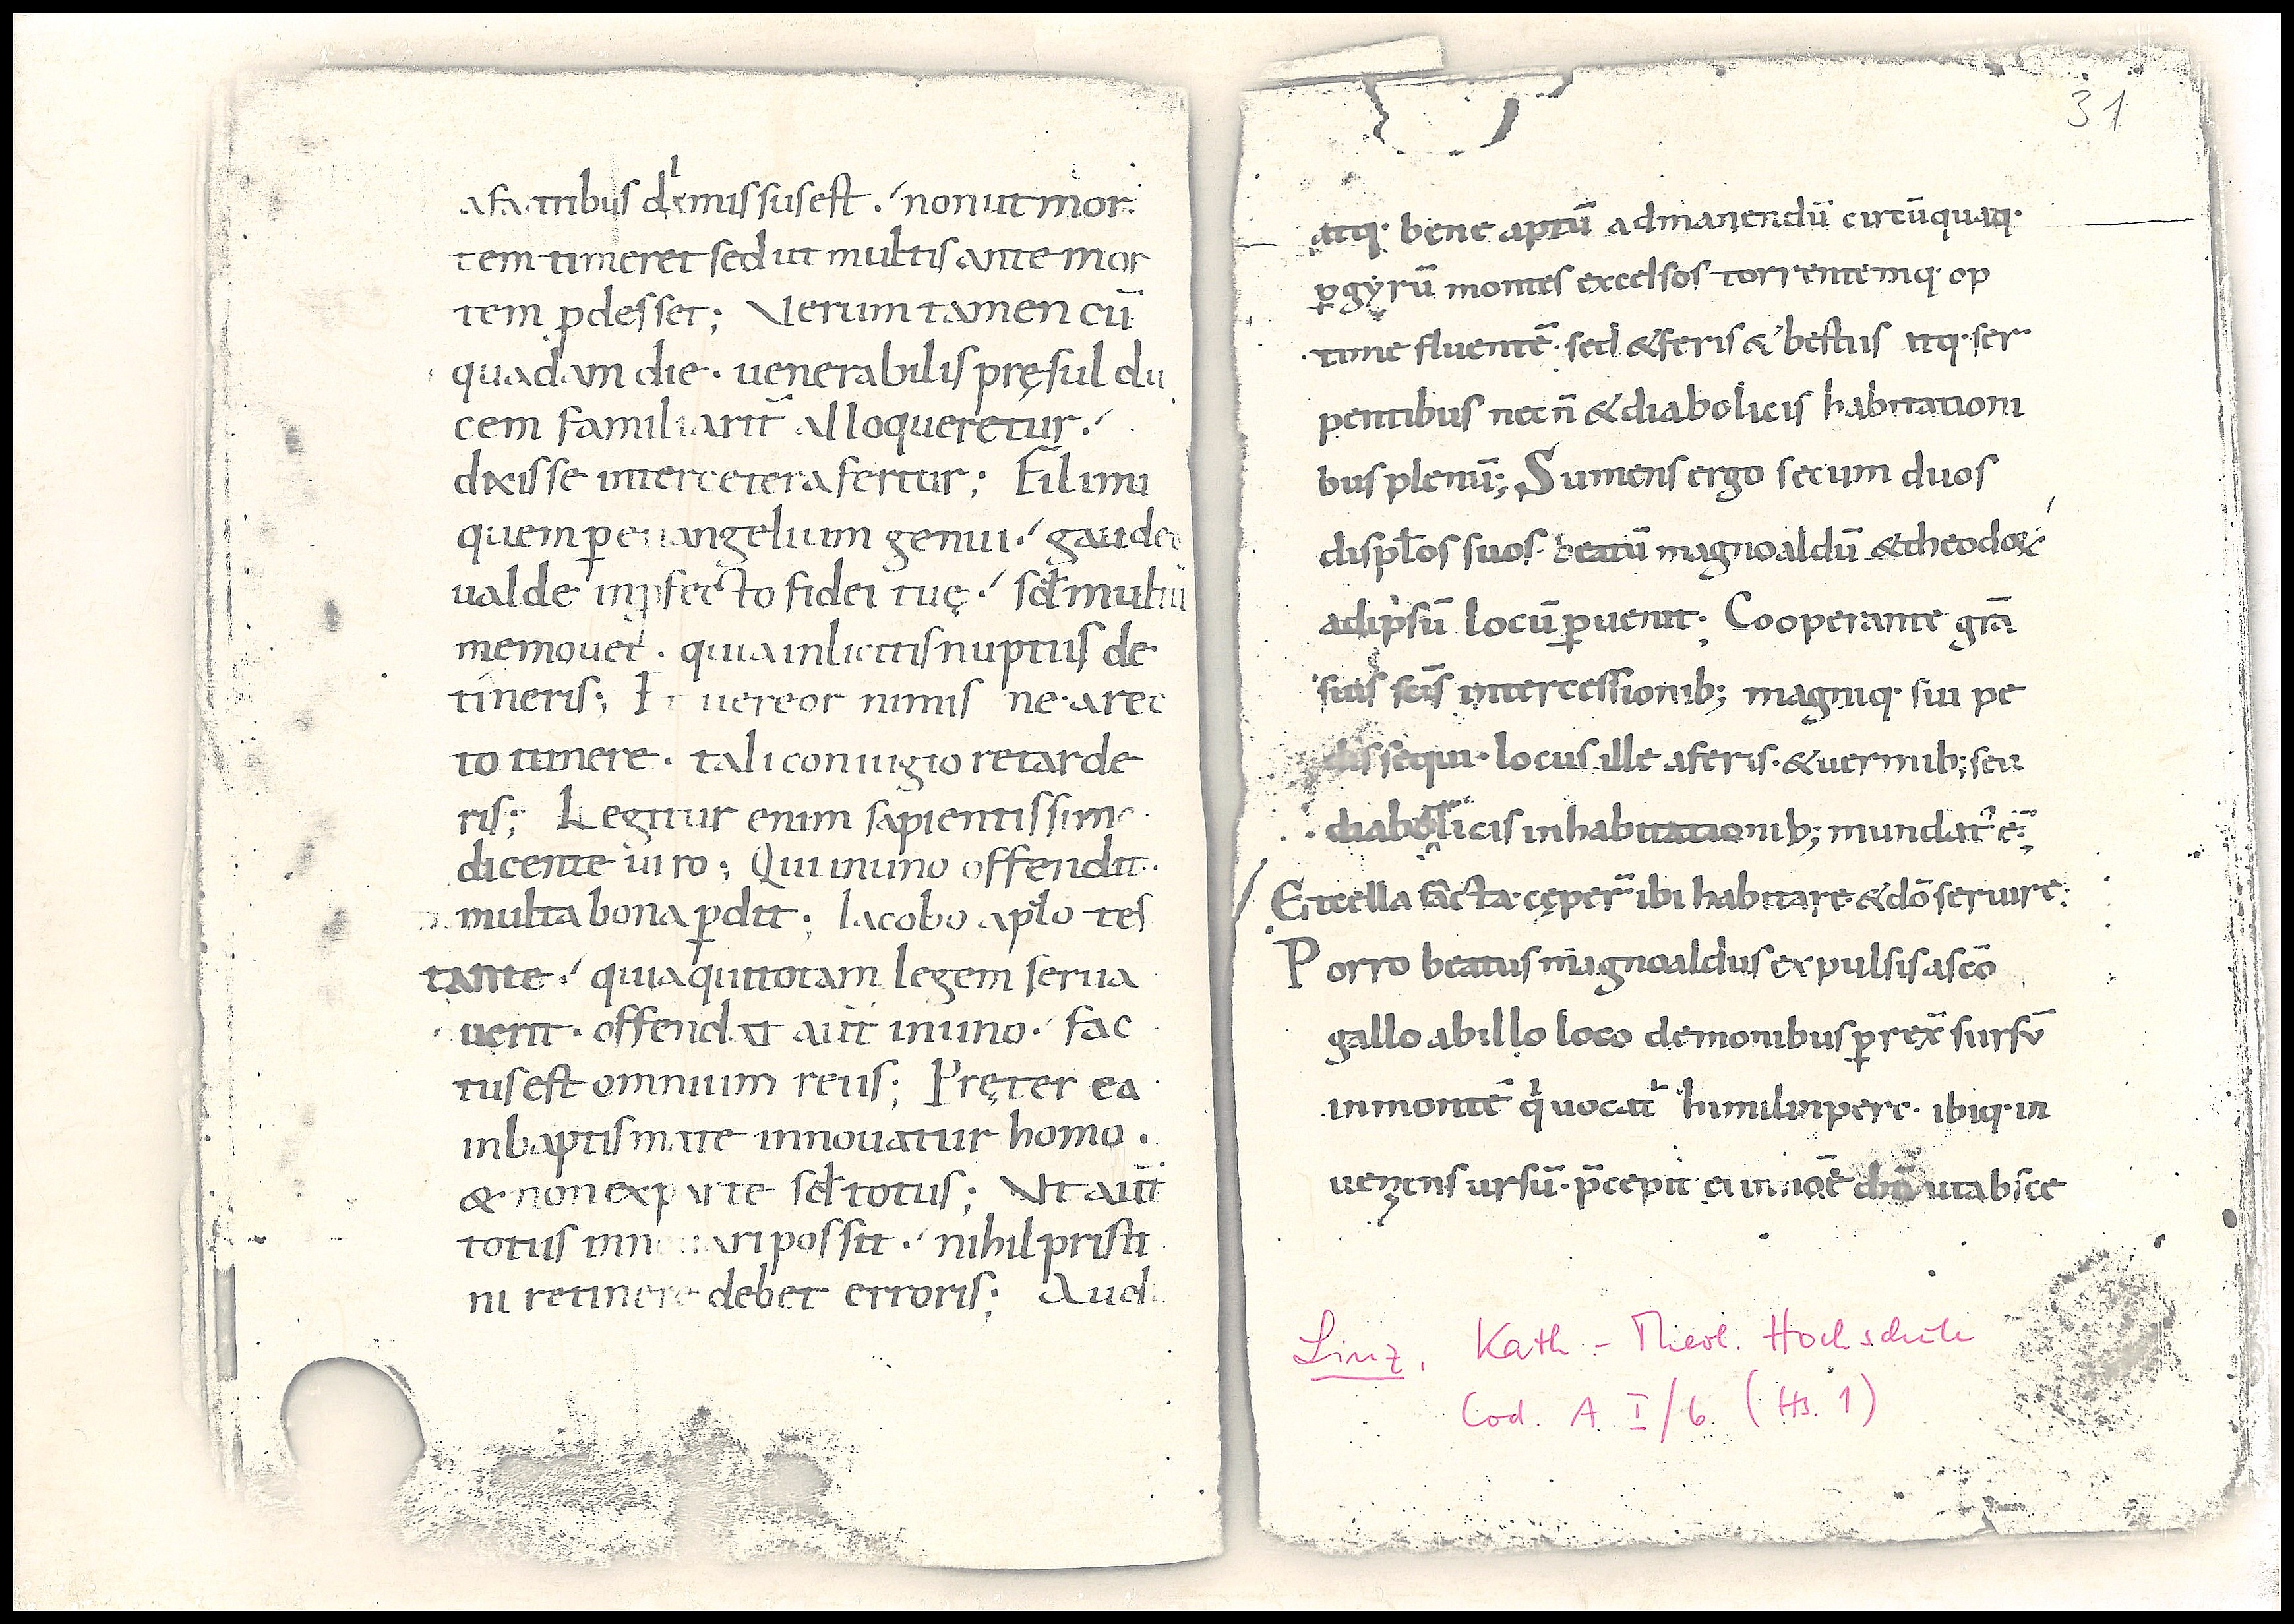 a fatribus dimissus est ./ non ut mor
tem timeret sed ut multis ante mor
tem pdesset; Verum tamen cū
quadam die · uenerabilis pręsul du
cem familiarit̄ alloqueretur ./
dixisse inter cetera fertur; Fili mi
quem p euangelium genui ./ gaudeo
ualde in pfecto fidei tuę ./ sed multū
me mouet · quia inlicitis nuptiis de
tineris; Et uereor nimis ne · a rec
to itinere · tali coniugio retarde
ris; Legitur enim sapientissimo
dicente uiro; Qui in uno offendit ·
multa bona pdit; Iacobo aplo tes
tante ./ quia qui totam legem serua
uerit · offendat aut̄ in uno ./ fac
tus est omnium reus; Pręter ea
in baptismate innouatur homo ·
& non ex parte sed totus; Ut aut̄
totus innouari possit ./ nihil pristi
ni retinere debet erroris; Audi
31
atq· bene aptū ad manendū circūquaq·
p gyrū montes excelsos torrentemq· op
time fluentē · sed & feris & bestiis itq· ser
pentibus necn̄ & diabolicis habitationi
bus plenū; Sumens ergo secum duos
displos suos · beatū magnoaldū & theodo
ad ipsū locū puenit; Cooperante grā
suis scīs intercessionib; magniq· sui pe
dissequi · locus ille a feris · & uermib; seu
diabolicis inhabitationib; mundat' ē;
Et cella facta cęper̄ ibi habitare & dō seruire;
Porro beatus magnoaldus expulsis a scō
gallo ab illo loco demonibus prex̄ sursū
in montē q uocat' himilinperc · ibiq· in
ueniens ursū · pcepit ei in noē dnī ut absce
Linz, Kath.-Theol. Hochschule
Cod. A I/6 (Hs. 1)